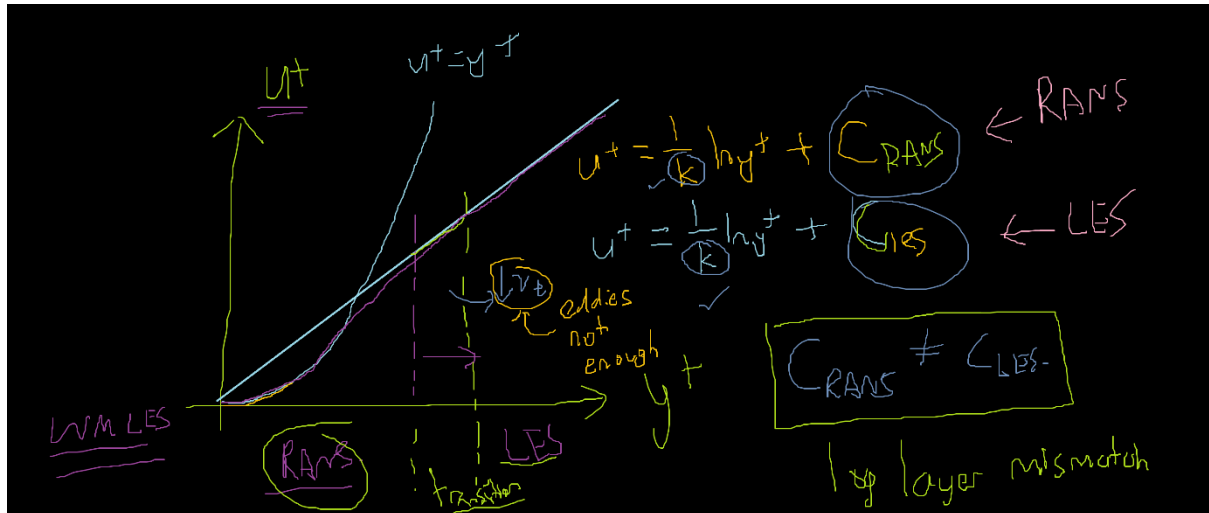 u⁺ = y⁺
U⁺
u⁺ = 1/k ln y⁺ + C_RANS ← RANS
u⁺ = 1/k ln y⁺ + C_les ← LES
↓ν_t
eddies
not
enough
y⁺
C_RANS ≠ C_LES.
WMLES
RANS
transition
LES
log layer mismatch